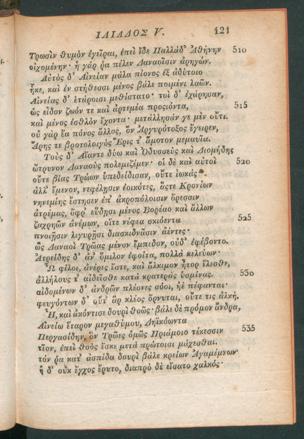 ΙΛΙΑΔΟΣ V. 121
Τρωσὶν θυμὸν ἐγεῖραι, ἐπεὶ ἴδε Παλλάδ' Ἀθήνην 510
οἰχομένην· ἡ γάρ ῥα πέλεν Δαναοῖσιν ἀρηγών.
Αὐτὸς δ' Αἰνείαν μάλα πίονος ἐξ ἀδύτοιο
ἧκε, καὶ ἐν στήθεσσι μένος βάλε ποιμένι λαῶν.
Αἰνείας δ' ἑτάροισι μεθίστατο· τοὶ δ' ἐχάρησαν,
ὡς εἶδον ζωόν τε καὶ ἀρτεμέα προσιόντα, 515
καὶ μένος ἐσθλὸν ἔχοντα· μετάλλησάν γε μὲν οὔτι.
οὐ γὰρ ἔα πόνος ἄλλος, ὃν Ἀργυρότοξος ἔγειρεν,
Ἄρης τε βροτολοιγὸς Ἔρις τ' ἄμοτον μεμαυῖα.
Τοὺς δ' Αἴαντε δύω καὶ Ὀδυσσεὺς καὶ Διομήδης
ὤτρυνον Δαναοὺς πολεμιζέμεν· οἱ δὲ καὶ αὐτοὶ 520
οὔτε βίας Τρώων ὑπεδείδισαν, οὔτε ἰωκάς·
ἀλλ' ἔμενον, νεφέλῃσιν ἐοικότες, ἅς τε Κρονίων
νηνεμίης ἔστησεν ἐπ' ἀκροπόλοισιν ὄρεσσιν
ἀτρέμας, ὄφρ' εὕδῃσι μένος Βορέαο καὶ ἄλλων
ζαχρηῶν ἀνέμων, οἵτε νέφεα σκιόεντα 525
πνοιῇσιν λιγυρῇσι διασκιδνᾶσιν ἀέντες·
ὣς Δαναοὶ Τρῶας μένον ἔμπεδον, οὐδ' ἐφέβοντο.
Ἀτρείδης δ' ἀν' ὅμιλον ἐφοίτα, πολλὰ κελεύων·
Ὦ φίλοι, ἀνέρες ἔστε, καὶ ἄλκιμον ἦτορ ἕλεσθε,
ἀλλήλους τ' αἰδεῖσθε κατὰ κρατερὰς ὑσμίνας. 530
αἰδομένων δ' ἀνδρῶν πλέονες σόοι, ἠὲ πέφανται·
φευγόντων δ' οὔτ' ἂρ κλέος ὄρνυται, οὔτε τις ἀλκή.
Ἦ, καὶ ἀκόντισε δουρὶ θοῶς· βάλε δὲ πρόμον ἄνδρα,
Αἰνείω ἕταρον μεγαθύμου, Δηϊκόωντα
Περγασίδην, ὃν Τρῶες ὁμῶς Πριάμοιο τέκεσσιν 535
τῖον, ἐπεὶ θοὸς ἔσκε μετὰ πρώτοισι μάχεσθαι.
τόν ῥα κατ' ἀσπίδα δουρὶ βάλε κρείων Ἀγαμέμνων·
ἡ δ' οὐκ ἔγχος ἔρυτο, διαπρὸ δὲ εἴσατο χαλκός·